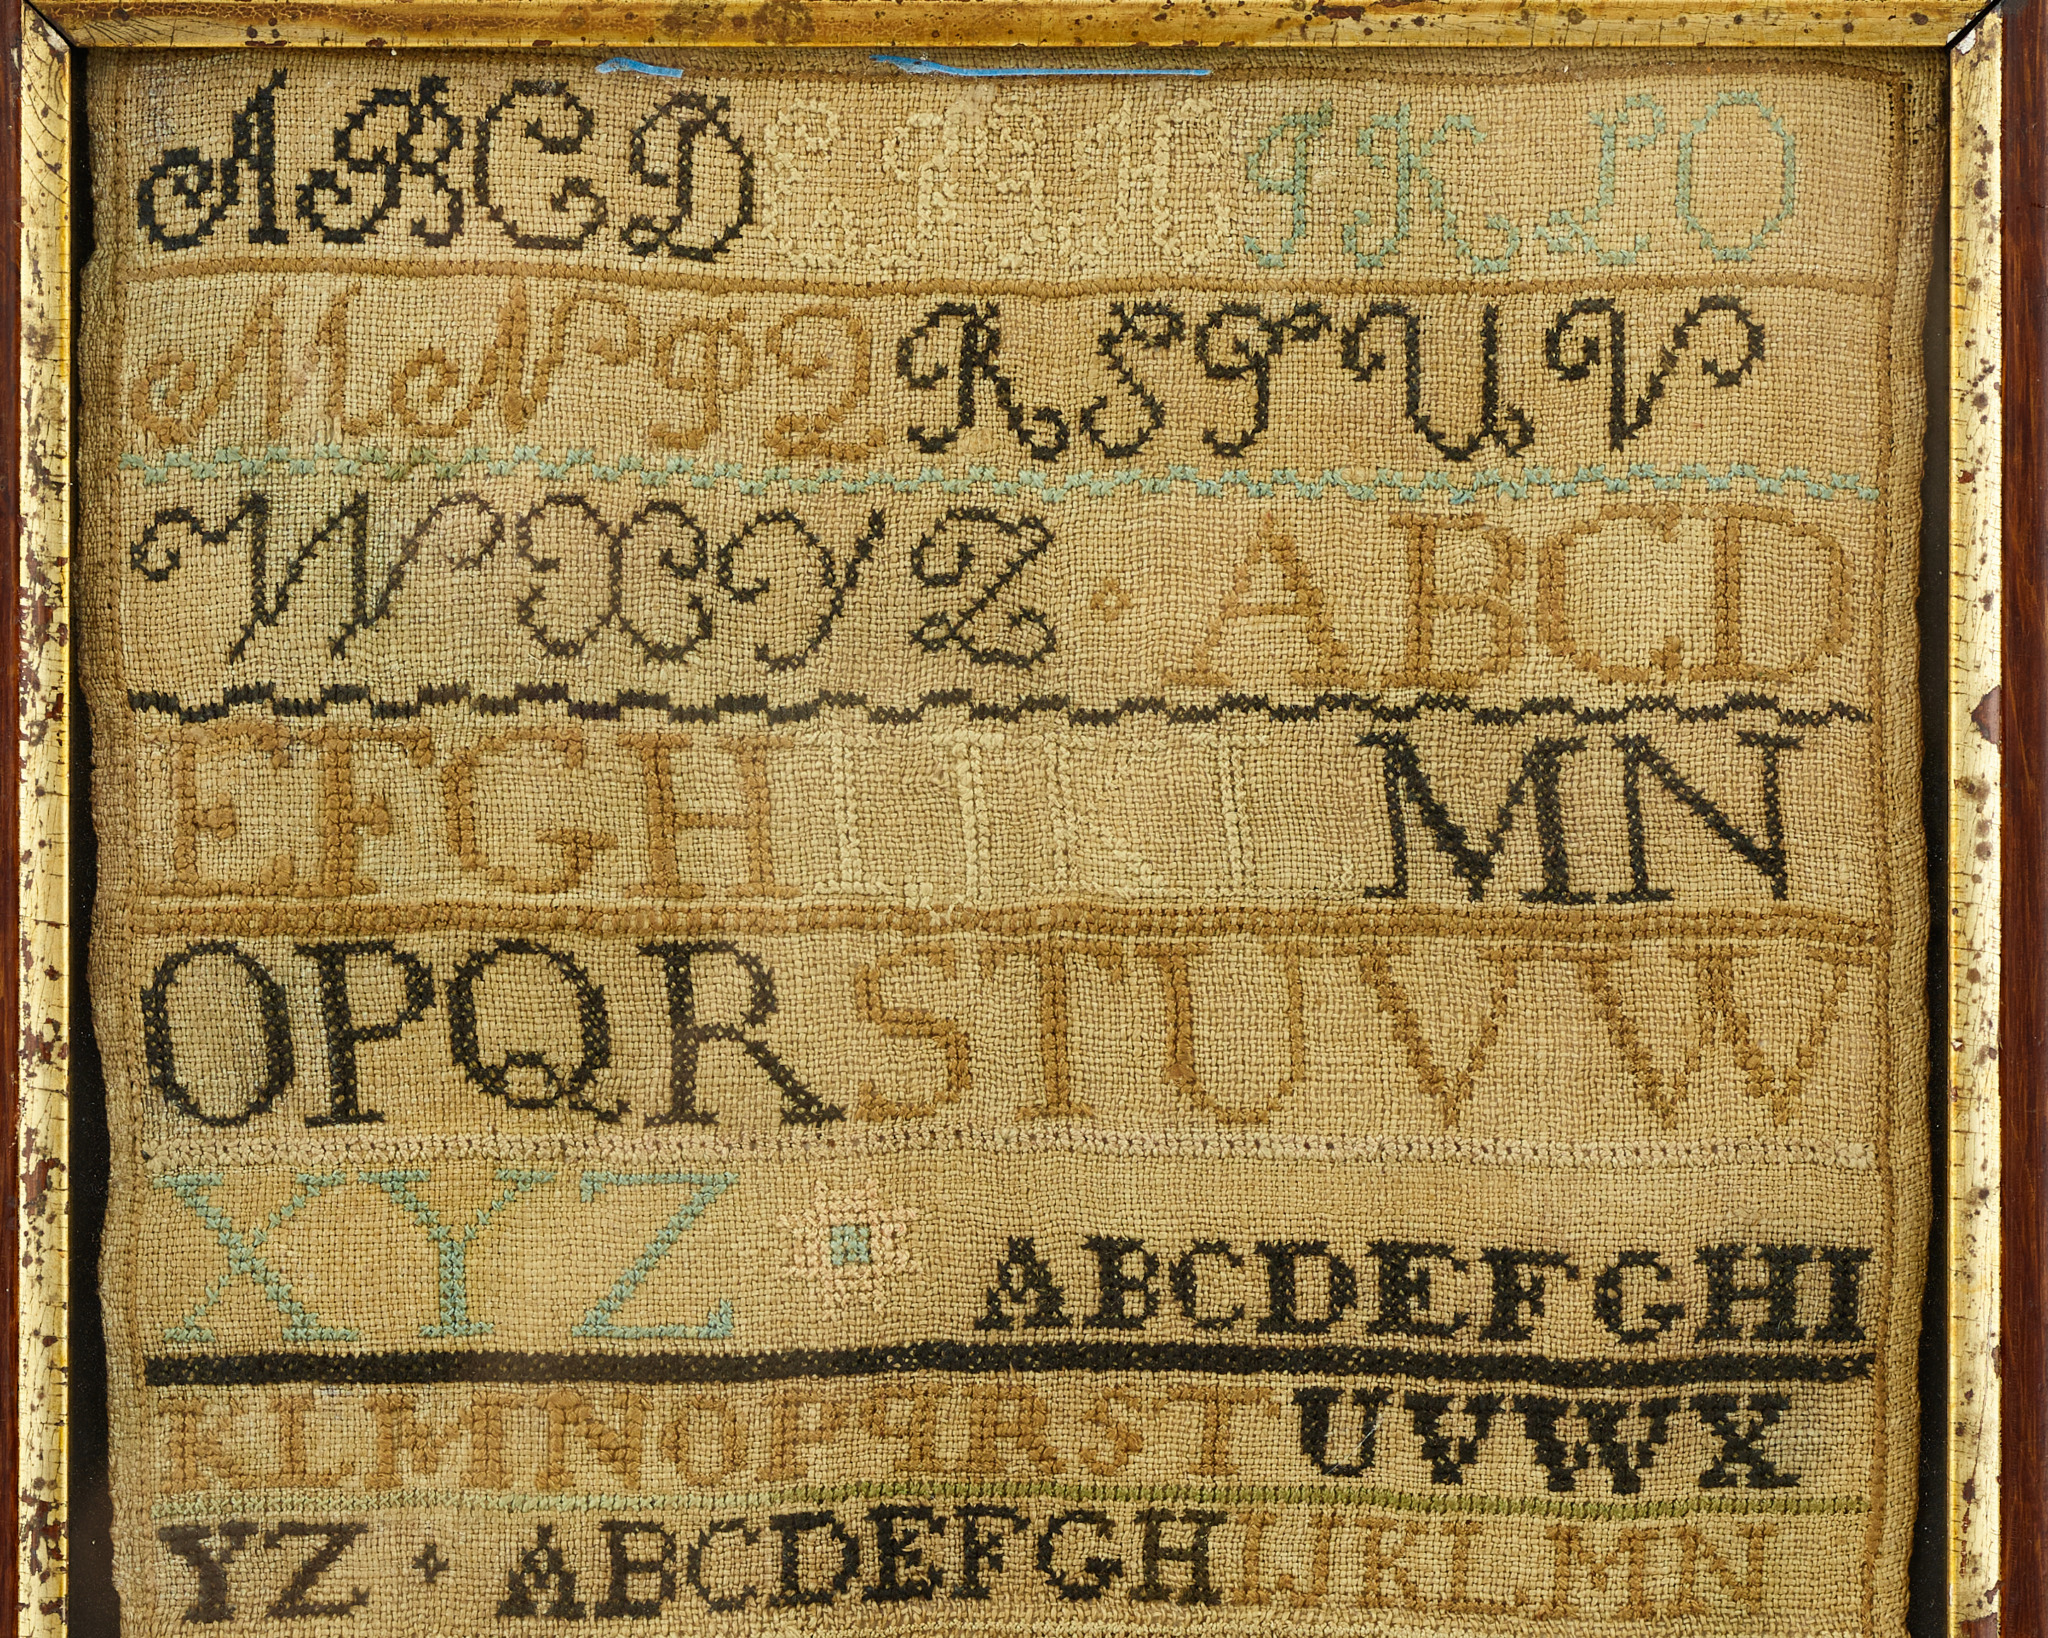 A B C D E F G H I K L O
M N P Q R S T U V
W X Y Z A B C D
E F G H I J K L M N
O P Q R S T U V W
X Y Z A B C D E F G H I
K L M N O P Q R S T U V W X
Y Z A B C D E F G H I J K L M N